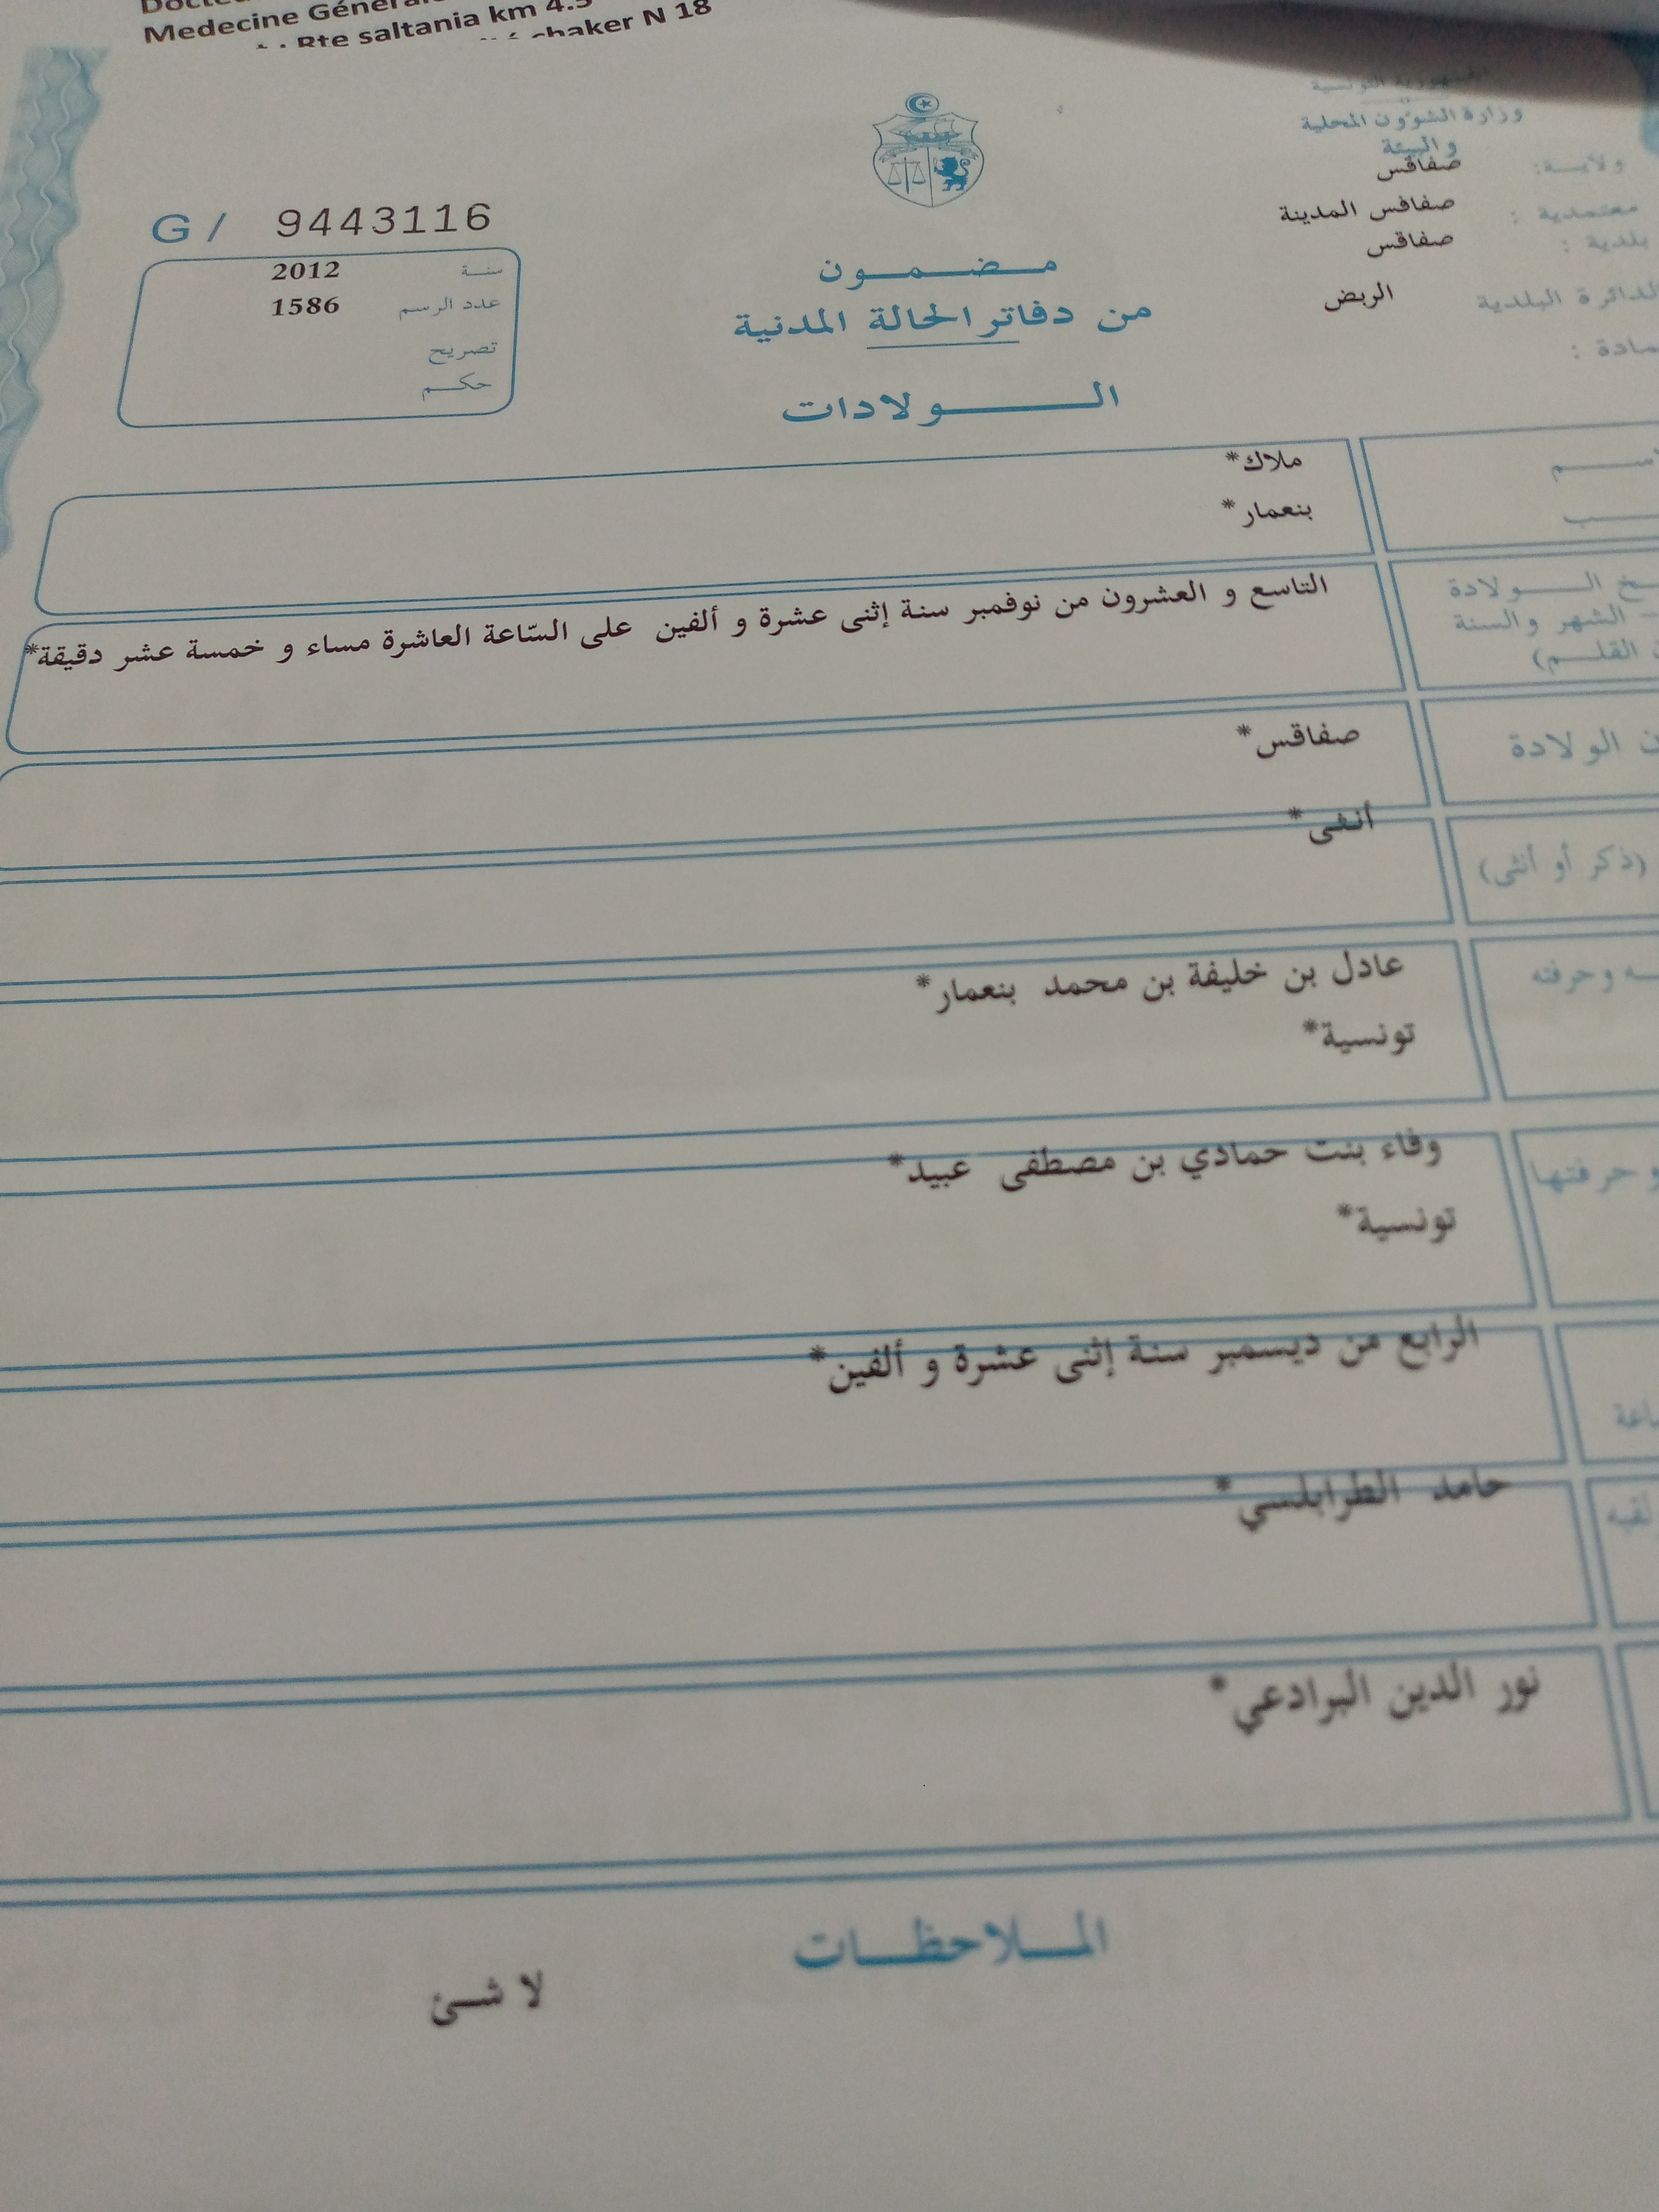 Medecine Générale
Rte saltania km 4.5
chaker N 18
الجمهورية التونسية
وزارة الشؤون المحلية
والبيئة
ولاية: صفاقس
معتمدية : صفاقس المدينة
بلدية : صفاقس
الدائرة البلدية الربض
G/ 9443116
سنة 2012
عدد الرسم 1586
تصريح
حكم
مضمون
من دفاتر الحالة المدنية
الولادات
ملاك*
بنعمار*
الولادة
التاسع و العشرون من نوفمبر سنة إثنى عشرة و ألفين على السّاعة العاشرة مساء و خمسة عشر دقيقة*
– الشهر والسنة
القلم)
الولادة صفاقس*
(ذكر أو أنثى) أنثى*
وحرفته عادل بن خليفة بن محمد بنعمار*
تونسية*
و حرفتها وفاء بنت حمادي بن مصطفى عبيد*
تونسية*
الرابع من ديسمبر سنة إثنى عشرة و ألفين*
حامد الطرابلسي*
نور الدين البرادعي*
الملاحظات
لا شئ